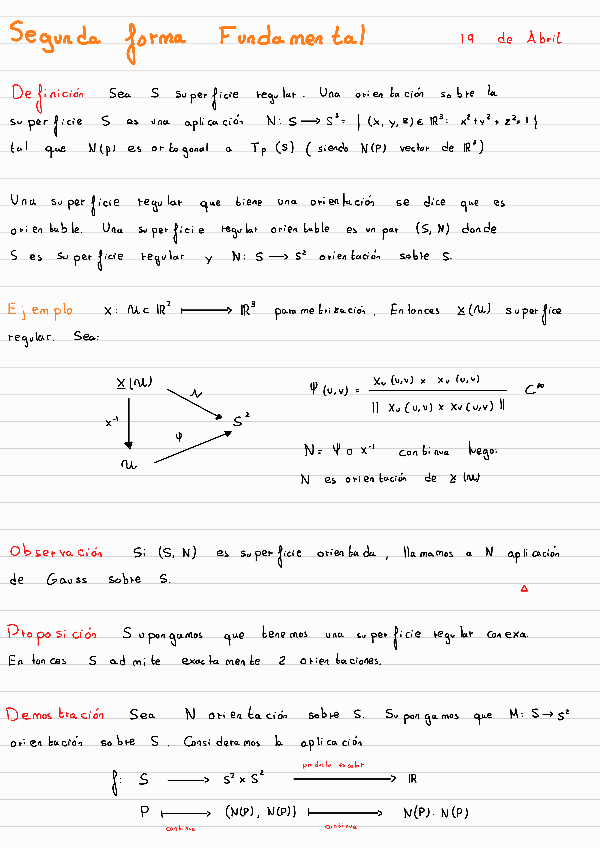 Segunda forma Fundamental 19 de Abril
Definición Sea S superficie regular. Una orientación sobre la
superficie S es una aplicación N: S → S² = { (x, y, z) ∈ ℝ³: x²+y²+z²=1 }
tal que N(p) es ortogonal a Tp (S) ( siendo N(P) vector de ℝ³ )
Una superficie regular que tiene una orientación se dice que es
orientable. Una superficie regular orientable es un par (S, N) donde
S es superficie regular y N: S → S² orientación sobre S.
Ejemplo X: U ⊂ ℝ² ⟼ ℝ³ parametrización. Entonces X(U) superfice
regular. Sea:
X(U)
N
X⁻¹
S²
φ
U
Ψ(u,v) = Xu (u,v) x Xv (u,v) / || Xu (u,v) x Xv (u,v) || C^∞
N = Ψ o X⁻¹ continua luego:
N es orientación de X(U)
Observación Si (S, N) es superficie orientada, llamamos a N aplicación
de Gauss sobre S.
Δ
Proposición Supongamos que tenemos una superficie regular conexa.
Entonces S admite exactamente 2 orientaciones.
Demostración Sea N orientación sobre S. Supongamos que M: S → S²
orientación sobre S. Consideramos la aplicación
producto escalar
f: S → S² x S² → ℝ
P ⟼ (N(P), N(P)) ⟼ N(P). N(P)
continua continua